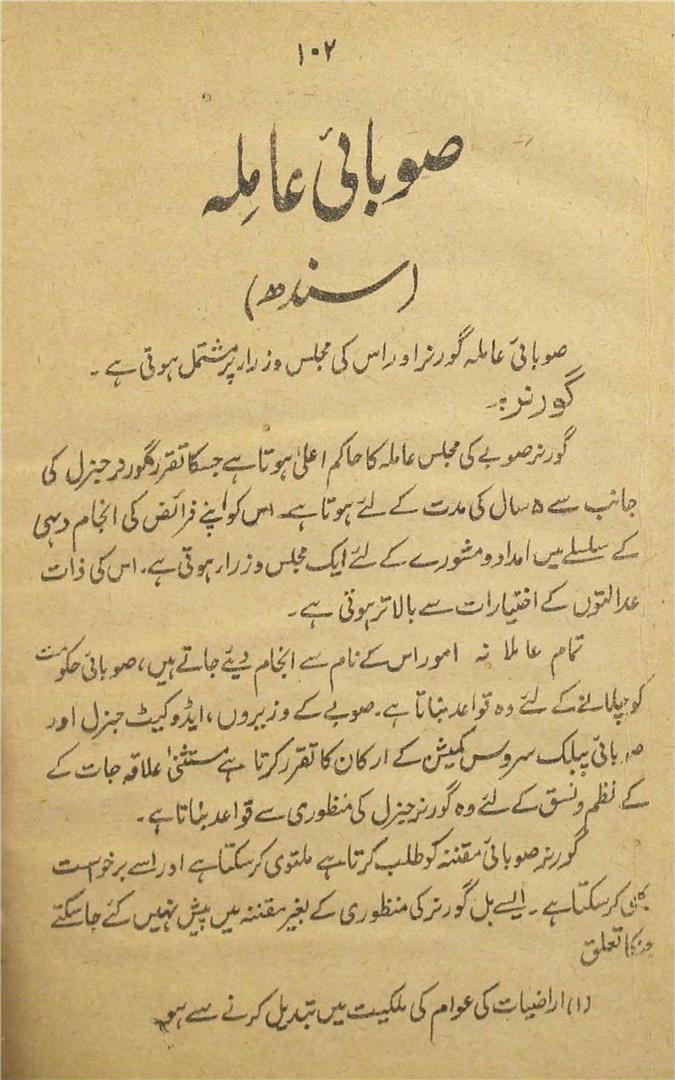 ۱۰۲
صوبائی عاملہ
(سندھ)
صوبائی عاملہ گورنر اور اس کی مجلس وزرار پر مشتمل ہوتی ہے۔
گورنر:۔
گورنر صوبے کی مجلس عاملہ کا حاکم اعلیٰ ہوتا ہے جسکا تقرر گورنر جنرل کی
جانب سے ۵ سال کی مدت کے لئے ہوتا ہے۔ اس کو اپنے فرائض کی انجام دہی
کے سلسلے میں امداد و مشورے کے لئے ایک مجلس وزرار ہوتی ہے۔ اس کی ذات
عدالتوں کے اختیارات سے بالاتر ہوتی ہے۔
تمام عاملانہ امور اس کے نام سے انجام دیئے جاتے ہیں، صوبائی حکومت
کو چلانے کے لئے وہ قواعد بناتا ہے۔ صوبے کے وزیروں، ایڈوکیٹ جنرل اور
صوبائی پبلک سروس کمیشن کے ارکان کا تقرر کرتا ہے مستثنیٰ علاقہ جات کے
کے نظم ونسق کے لئے وہ گورنر جنرل کی منظوری سے قواعد بناتا ہے۔
گورنر صوبائی مقننہ کو طلب کرتا ہے ملتوی کرسکتا ہے اور اسے برخواست
بھی کرسکتا ہے۔ ایسے بل گورنر کی منظوری کے بغیر مقننہ میں پیش نہیں کئے جاسکتے
جنکا تعلق
(۱) اراضیات کی عوام کی ملکیت میں تبدیل کرنے سے ہو